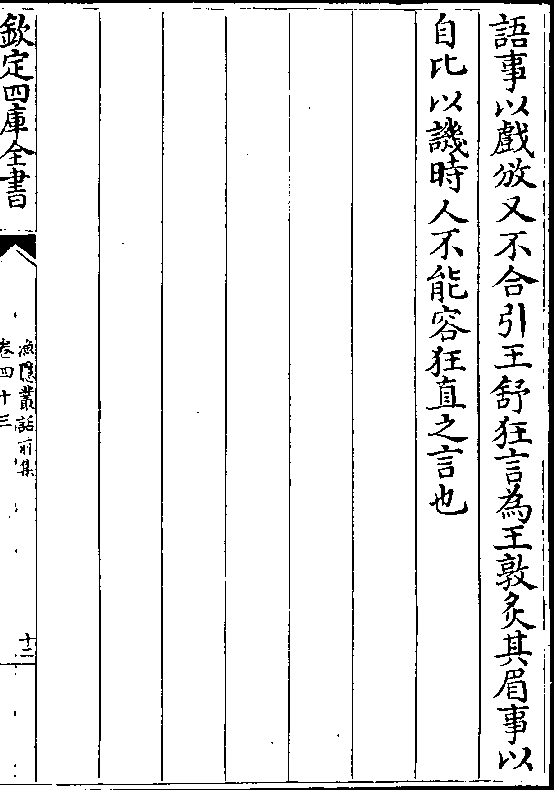 語事以戲攽又不合引王舒狂言為王敦炙其眉事以
自比以譏時人不能容狂直之言也
欽定四庫全書
漁隱叢話前集
卷四十三
十二